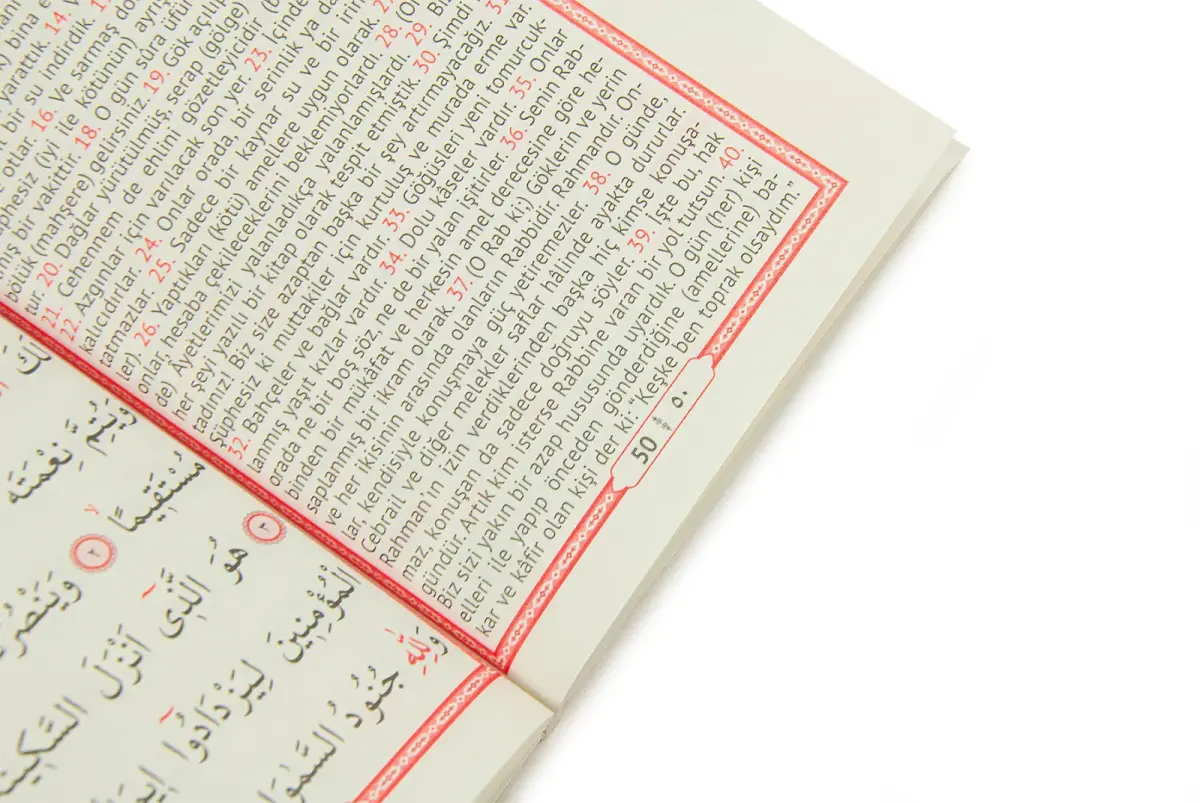 bina e
yarattık. 14.
bir su indirdik
16. Ve sarmaş
(iyi ile kötünün)
bir vakittir. 18. O gün sûra
bölük (mahşere) gelirsiniz. 19. Gök
tur. 20. Dağlar yürütülmüş, serap (gölge)
21. Cehennem de ehlini gözetleyicidir.
22. Azgınlar için varılacak son yer. 23. İçinde
kalıcıdırlar. 24. Onlar orada, bir serinlik ya
tanmazlar. 25. Sadece bir kaynar su ve bir irin
ler). 26. Yaptıkları (kötü) amellere uygun olarak.
onlar, hesaba çekileceklerini beklemiyorlardı. 28.
de) Âyetlerimizi yalanladıkça yalanlamışlardı. 29.
her şeyi yazılı bir kitap olarak tespit etmiştik. 30. Şimdi
tadınız! Biz size azaptan başka bir şey artırmayacağız.
Şüphesiz ki muttakiler için kurtuluş ve murada erme var.
32. Bahçeler ve bağlar vardır. 33. Göğüsleri yeni tomurcuk-
lanmış yaşıt kızlar vardır. 34. Dolu kâseler vardır. 35. Onlar
orada ne bir boş söz, ne de bir yalan işitirler. 36. Senin Rab-
binden bir mükâfat ve herkesin amel derecesine göre he-
saplanmış bir ikram olarak. 37. (O Rab ki;) Göklerin ve yerin
ve her ikisinin arasında olanların Rabbidir. Rahmandır. On-
lar, kendisiyle konuşmaya güç yetiremezler. 38. O günde,
Cebrail ve diğer melekler saflar hâlinde ayakta dururlar.
Rahman'ın izin verdiklerinden başka hiç kimse konuşa-
maz, konuşan da sadece doğruyu söyler. 39. İşte bu, hak
gündür. Artık kim isterse Rabbine varan bir yol tutsun. 40.
Biz sizi yakın bir azap hususunda uyardık. O gün (her) kişi
elleri ile yapıp önceden gönderdiğine (amellerine) ba-
kar ve kâfir olan kişi der ki: “Keşke ben toprak olsaydım.”
50 ٥٠
وَيُتِمَّ نِعْمَتَهُ
مُسْتَقِيمًا ٢
٣ هُوَ الَّذِى اَنْزَلَ السَّكِينَةَ
الْمُؤْمِنِينَ لِيَزْدَادُوا
وَلِلّٰهِ جُنُودُ